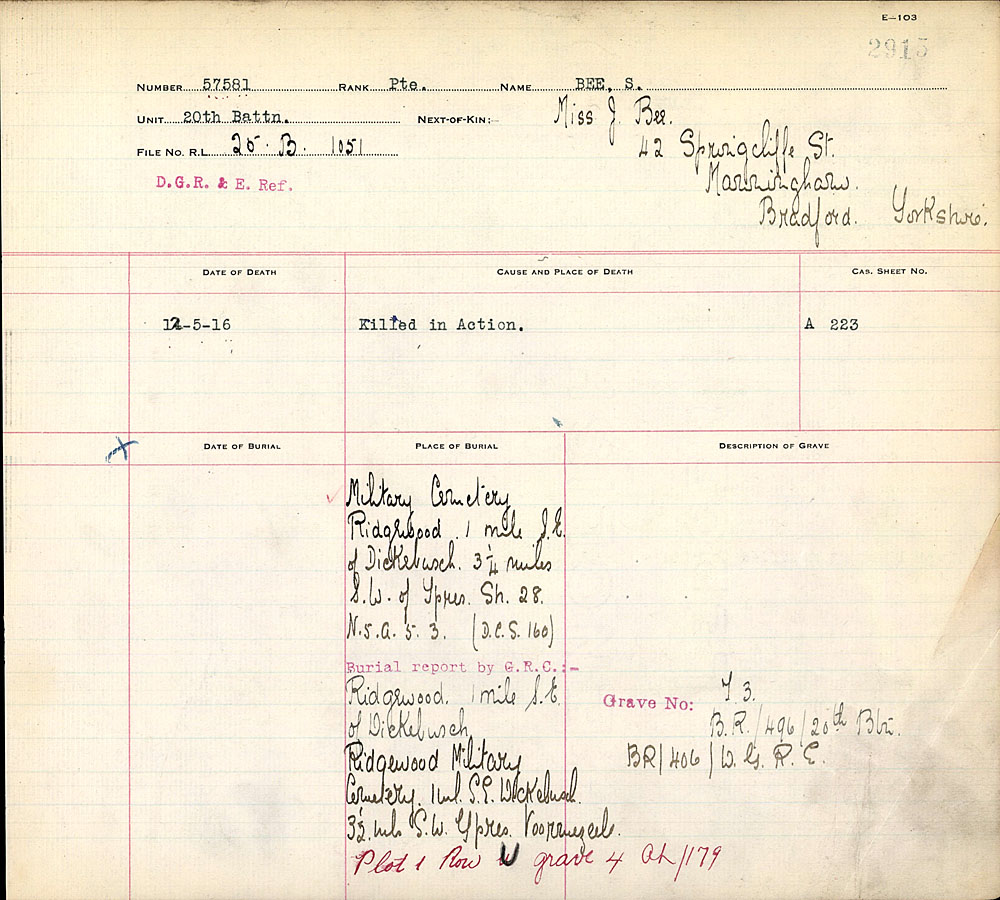 E—103
2915
NUMBER 57581 RANK Pte. NAME BEE, S.
UNIT 20th Battn. NEXT-OF-KIN:- Miss J. Bee.
42 Springcliffe St.
FILE NO. R.L. 25. B. 1051
D.G.R. & E. Ref.
Manningham.
Bradford. Yorkshire.
DATE OF DEATH CAUSE AND PLACE OF DEATH CAS. SHEET NO.
12-5-16 Killed in Action. A 223
DATE OF BURIAL PLACE OF BURIAL DESCRIPTION OF GRAVE
Military Cemetery
Ridgewood. 1 mile S.E.
of Dickebusch. 3¼ miles
S.W. of Ypres. Sh. 28.
N.5.a.5.3. (D.C.S. 160)
Burial report by G.R.C.:-
Ridgewood. 1 mile S.E.
of Dickebusch
Grave No: 3.
B.R./496/20th Btn.
BR/406/W.G.R.E.
Ridgewood Military
Cemetery. 1 ml. S.E. Dickebusch.
3½ mls S.W. Ypres. Voormezeele.
Plot 1 Row U grave 4 /179